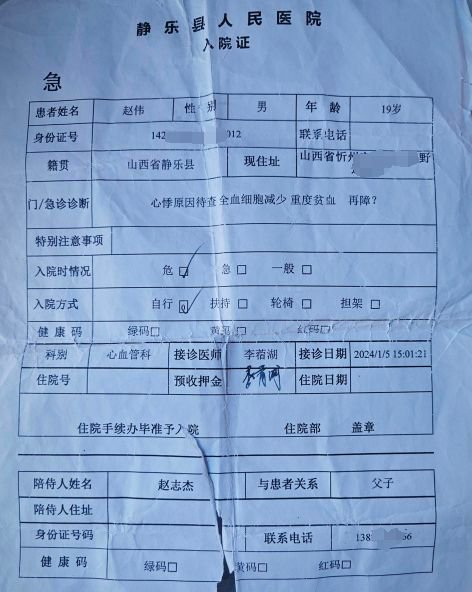 静乐县人民医院
入院证
急
患者姓名 赵伟 性别 男 年龄 19岁
身份证号 142 012 联系电话
籍贯 山西省静乐县 现住址 山西省忻州 野
门/急诊诊断 心悸原因待查全血细胞减少 重度贫血 再障?
特别注意事项
入院时情况 危□ 急□ 一般□
入院方式 自行□ 扶持□ 轮椅□ 担架□
健康码 绿码□ 黄码□ 红码□
科别 心血管科 接诊医师 李蓿湖 接诊日期 2024/1/5 15:01:21
住院号 预收押金 住院日期
住院手续办毕准予入院 住院部 盖章
陪侍人姓名 赵志杰 与患者关系 父子
陪侍人住址
身份证号码 联系电话 138 66
健康码 绿码□ 黄码□ 红码□